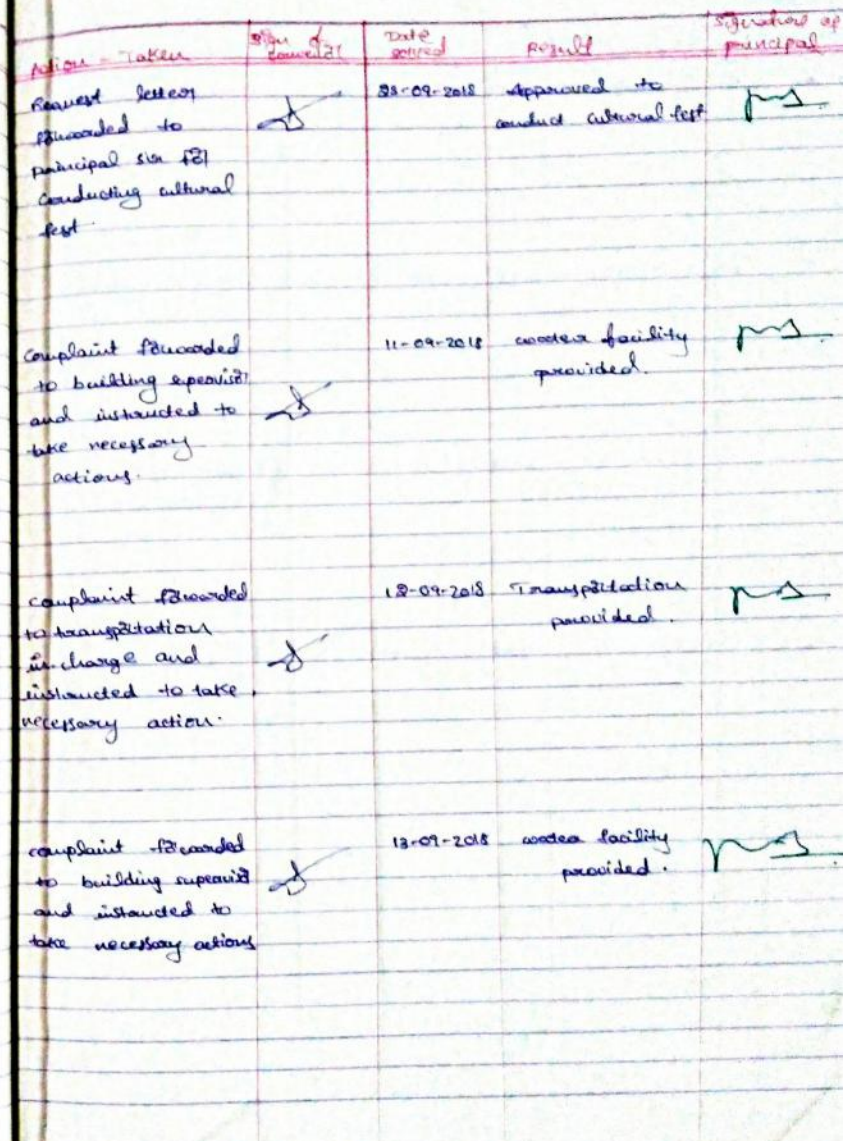 Action - Taken
Sign of convenor
Date solved
Result
Signature of principal
Request letter
forwarded to
principal sir for
conducting cultural
fest.
28-09-2018
Approved to
conduct cultural fest
complaint forwarded
to building supervisor
and instructed to
take necessary
actions.
11-09-2018
water facility
provided.
complaint forwarded
to transportation
in charge and
instructed to take
necessary action.
18-09-2018
Transportation
provided.
complaint forwarded
to building supervisor
and instructed to
take necessary actions
13-09-2018
water facility
provided.